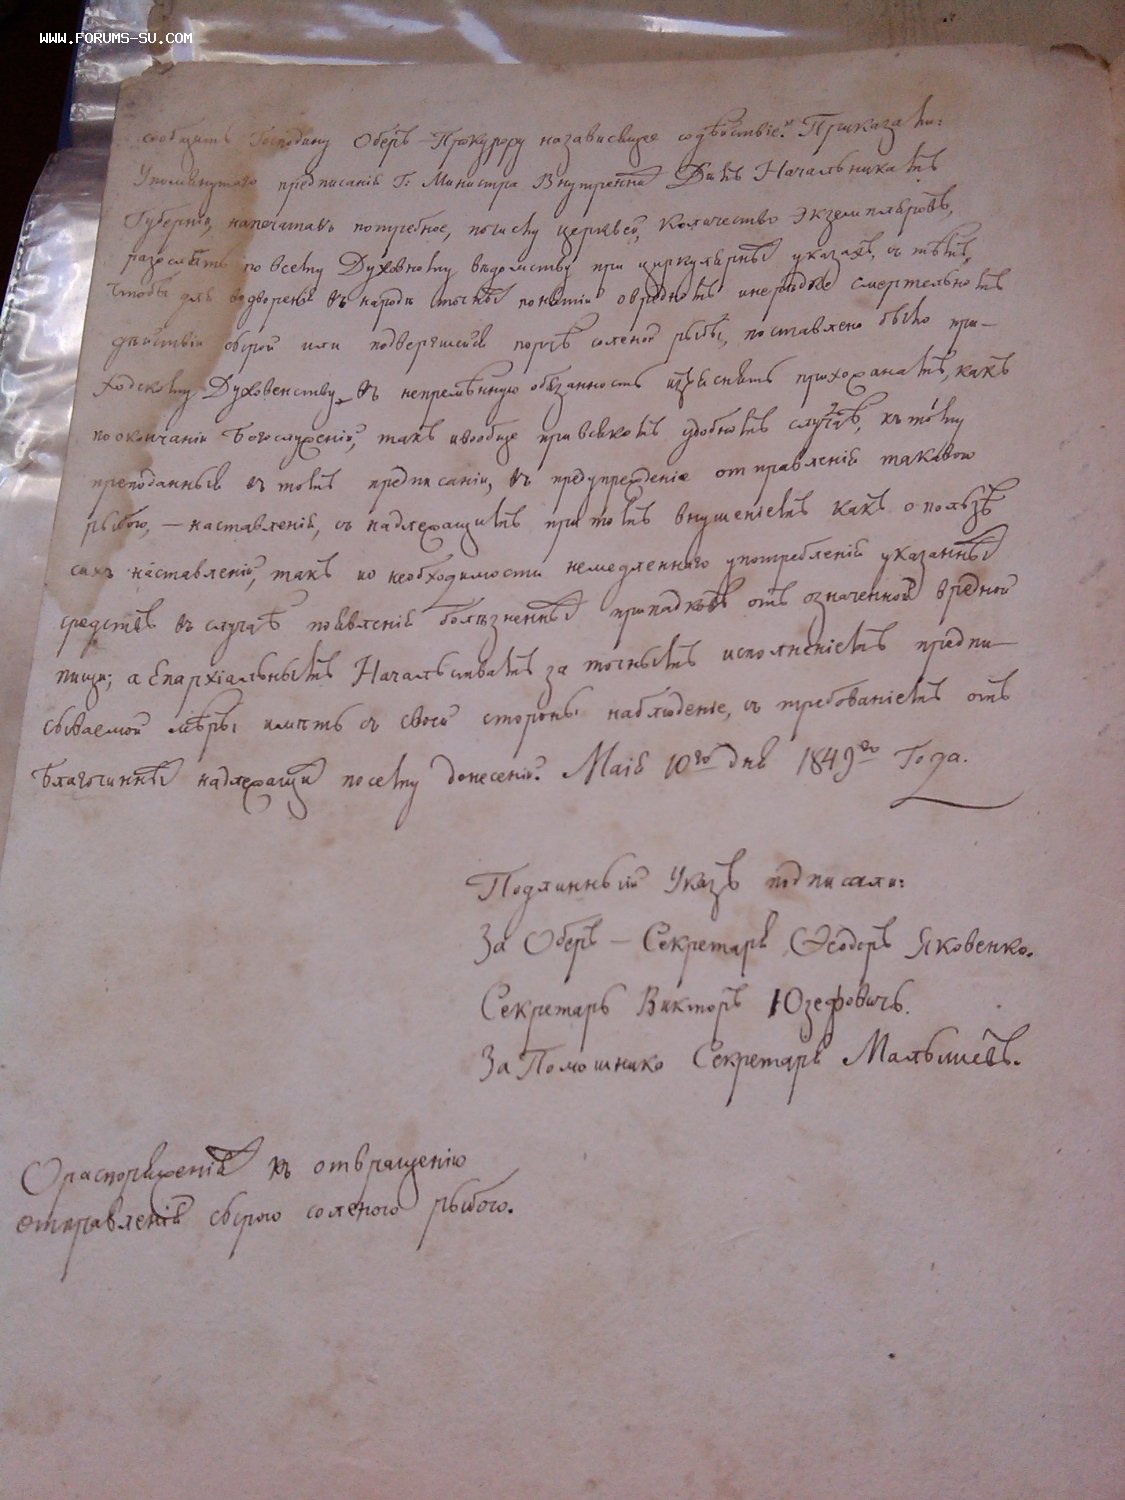 WWW.FORUMS-SU.COM
сообщить Господину Оберъ-Прокурору назависящее содѣйствіе. Приказали:
Упомянутого предписанія Г: Министра Внутреннихъ Дѣлъ Начальникамъ
Губерній, напечатавъ потребное, почислу церквей, количество экземпляровъ,
разослать по всему Духовному вѣдомству при циркулярныхъ указахъ, съ тѣмъ,
чтобы для водворенія въ народѣ точныхъ понятій о вредномъ инерѣдко смертельномъ
дѣйствіи сырой или подвергшейся порчѣ соленой рыбы, поставлено было при-
ходскому Духовенству въ непремѣнную обязанность изъяснять прихожанамъ, какъ
по окончаніи Богослуженія, такъ ивообще при всякомъ удобномъ случаѣ, къ тому
преподанныя въ томъ предписаніи, въ предупрежденіе отправленія таковою
рыбою, — наставленія, съ надлежащимъ притомъ внушеніемъ какъ о пользѣ
сихъ наставленій, такъ ио необходимости немедленнаго употребленія указанныхъ
средствъ въ случаѣ появленія болѣзненныхъ припадковъ отъ означенной вредной
пищи; а Епархіальнымъ Начальствамъ за точнымъ исполненіемъ предпи-
сываемой мѣры имѣть съ своей стороны наблюденіе, съ требованіемъ отъ
Благочинныхъ надлежащихъ посему донесеній. Маія 10го дня 1849го Года.
Подлинный Указъ подписали:
За Оберъ-Секретаря Ѳеодоръ Яковенко.
Секретарь Викторъ Юзефовичъ.
За Помошнико Секретаря Малышевъ.
О распоряженіяхъ къ отвращенію
отправленія сырою соленою рыбою.